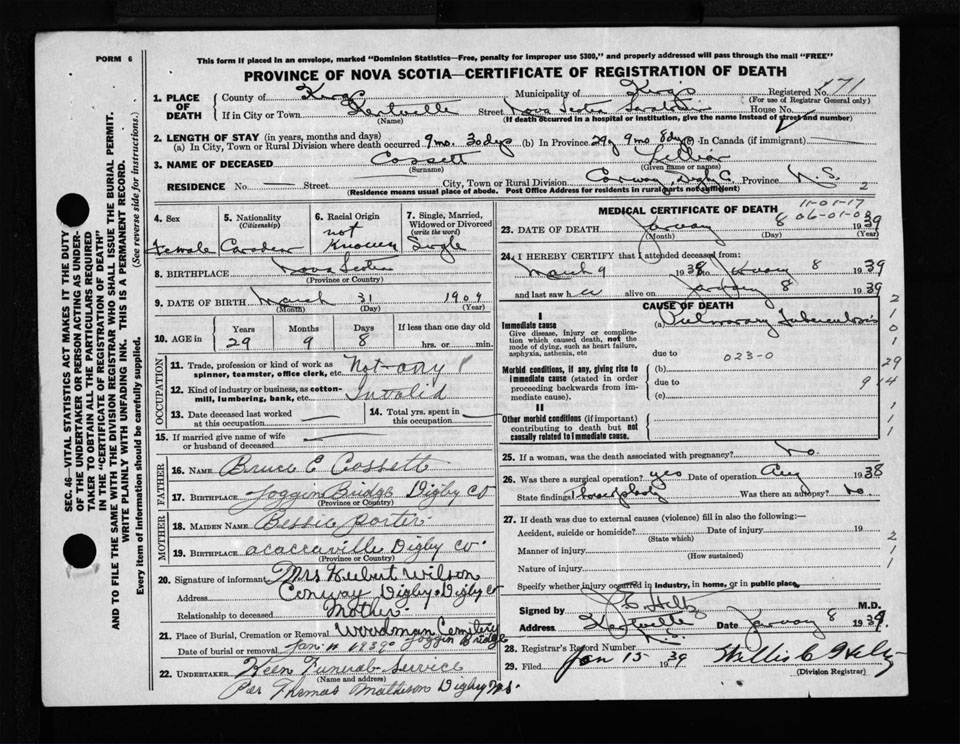 FORM 6
This form if placed in an envelope, marked "Dominion Statistics—Free, penalty for improper use $300," and properly addressed will pass through the mail "FREE"
PROVINCE OF NOVA SCOTIA—CERTIFICATE OF REGISTRATION OF DEATH
SEC. 46—VITAL STATISTICS ACT MAKES IT THE DUTY
OF THE UNDERTAKER OR PERSON ACTING AS UNDER-
TAKER TO OBTAIN ALL THE PARTICULARS REQUIRED
IN THE "CERTIFICATE OF REGISTRATION OF DEATH"
AND TO FILE THE SAME WITH THE DIVISION REGISTRAR WHO SHALL ISSUE THE BURIAL PERMIT.
WRITE PLAINLY WITH UNFADING INK. THIS IS A PERMANENT RECORD.
Every item of information should be carefully supplied. (See reverse side for instructions.)
1. PLACE OF DEATH
County of Kings Municipality of King's Registered No. 171
(For use of Registrar General only)
If in City or Town Kentville Street Nova Scotia House No.
(Name) (If death occurred in a hospital or institution, give the name instead of street and number)
2. LENGTH OF STAY (in years, months and days)
(a) In City, Town or Rural Division where death occurred 9 mo. 30 dys (b) In Province 29 y 9 mo 8 dys (c) In Canada (if immigrant)
3. NAME OF DECEASED Cossett
(Surname) (Given name or names)
RESIDENCE No. — Street City, Town or Rural Division Conway, Digby C. Province N.S. 2
(Residence means usual place of abode. Post Office Address for residents in rural parts not sufficient)
4. Sex Female
5. Nationality (Citizenship) Canadian
6. Racial Origin not Known
7. Single, Married, Widowed or Divorced (write the word) Single
8. BIRTHPLACE Nova Scotia
(Province or Country)
9. DATE OF BIRTH March 31 1909
(Month) (Day) (Year)
10. AGE in Years 29 Months 9 Days 8 If less than one day old hrs. or min.
OCCUPATION
11. Trade, profession or kind of work as spinner, teamster, office clerk, etc. Not-any
12. Kind of industry or business, as cotton-mill, lumbering, bank, etc. Invalid
13. Date deceased last worked at this occupation
14. Total yrs. spent in this occupation
15. If married give name of wife or husband of deceased
FATHER
16. NAME Bruce E Cossett
17. BIRTHPLACE Joggin Bridge Digby Co
(Province or Country)
MOTHER
18. MAIDEN NAME Bessie Porter
19. BIRTHPLACE acaciaville Digby Co.
(Province or Country)
20. Signature of informant Mrs Hubert Wilson
Address Conway Digby Digby Co
Relationship to deceased Mother
21. Place of Burial, Cremation or Removal Woodman Cemetery
Joggin Bridge
Date of burial or removal Jan. 11 1939
22. UNDERTAKER Keen Funeral Service
(Name and address)
Per Thomas Matheson Digby N.S.
MEDICAL CERTIFICATE OF DEATH
11-01-17
06-01-03
23. DATE OF DEATH January 8 1939
(Month) (Day) (Year)
24. I HEREBY CERTIFY that I attended deceased from:
March 9 1938 to January 8 1939
and last saw her alive on January 8 1939
CAUSE OF DEATH
I
Immediate cause
Give disease, injury or complication which caused death, not the mode of dying, such as heart failure, asphyxia, asthenia, etc
(a) Pulmonary Tuberculosis
due to 023-0
Morbid conditions, if any, giving rise to immediate cause (stated in order proceeding backwards from immediate cause).
(b)
due to
(c)
II
Other morbid conditions (if important) contributing to death but not causally related to immediate cause.
2
1
0
1
29
9 14
1
1
1
25. If a woman, was the death associated with pregnancy? No.
26. Was there a surgical operation? yes Date of operation Aug 1938
State findings Thoracoplasty Was there an autopsy? No.
27. If death was due to external causes (violence) fill in also the following:—
Accident, suicide or homicide? Date of injury 19
(State which)
Manner of injury
(How sustained)
Nature of injury
2
1
1
Specify whether injury occurred in industry, in home, or in public place
Signed by M.D.
Address Kentville N.S. Date January 8 1939.
28. Registrar's Record Number
29. Filed Jan 15 1939
(Division Registrar)